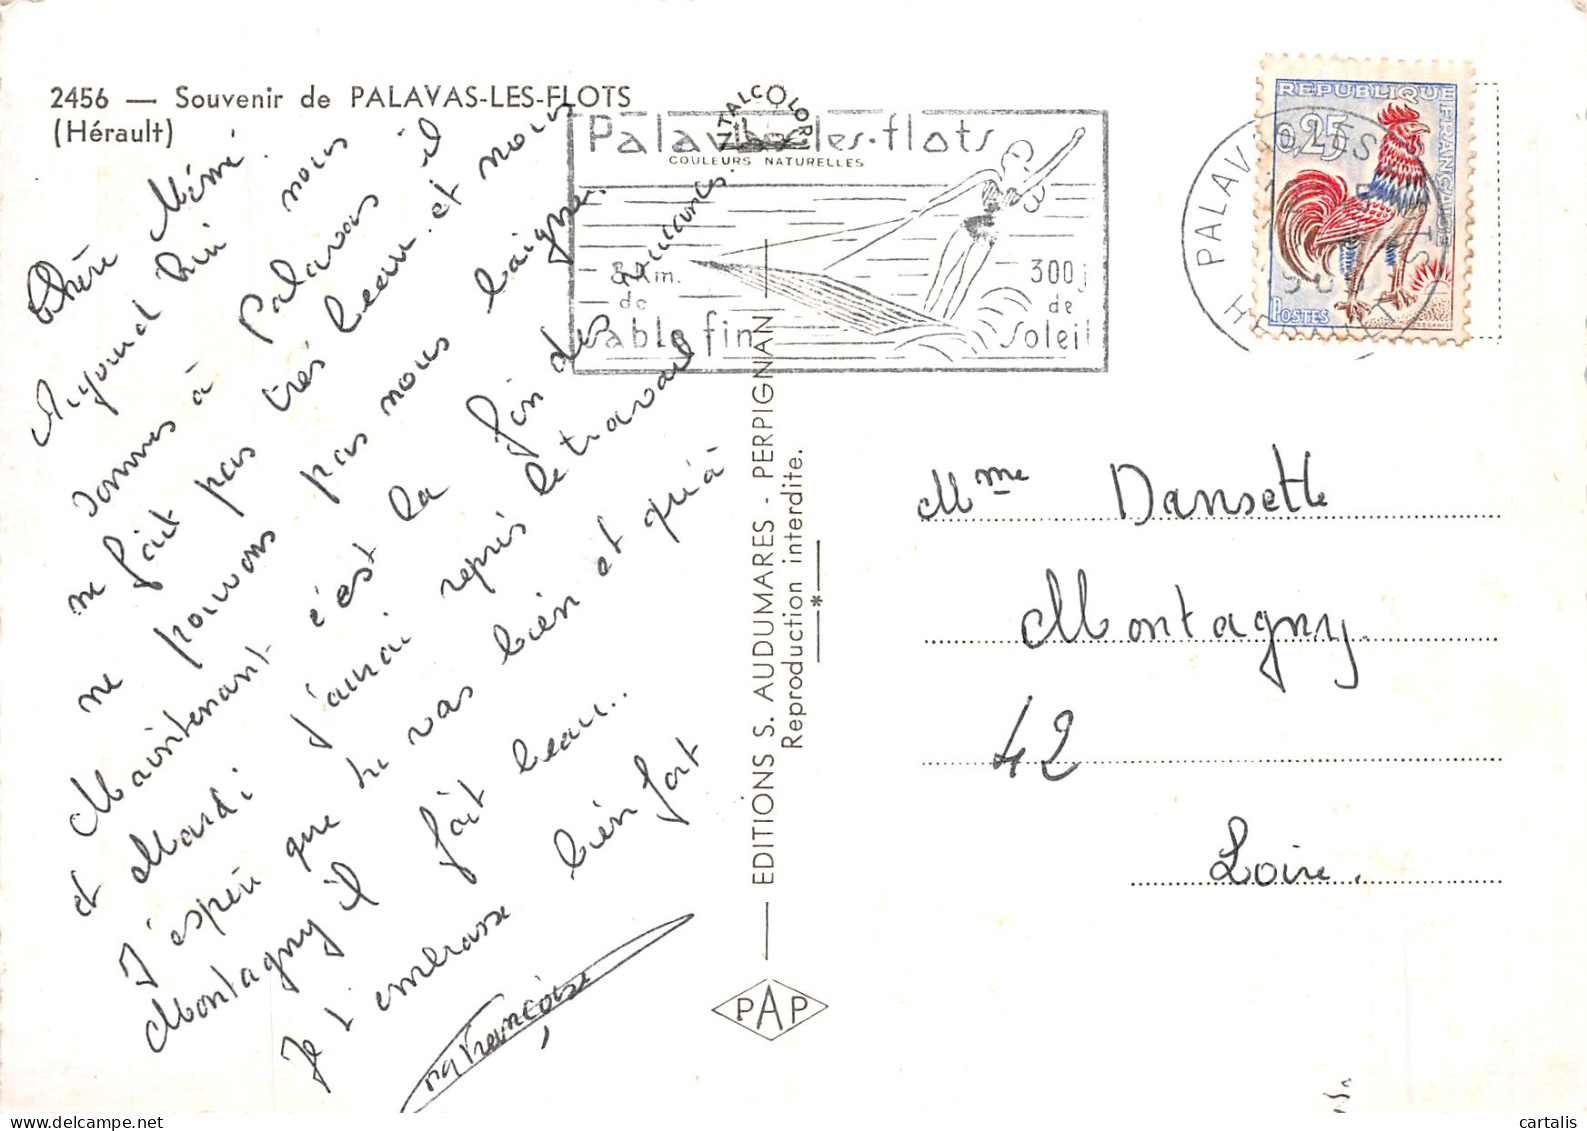 2456 — Souvenir de PALAVAS-LES-FLOTS
(Hérault)
Chère Mémé.
Aujourd'hui nous
sommes à Palavas il
ne fait pas très beau et nous
ne pouvons pas nous baigner.
Maintenant c'est la fin des vacances.
et Mardi j'aurai repris le travail
J'espère que tu vas bien et qu'à
Montagny il fait beau..
Je t'embrasse bien fort
Françoise
VITALCOLOR
COULEURS NATURELLES
Palavas-les-flots
8 km.
de
Sable fin
300 j
de
Soleil
EDITIONS S. AUDUMARES - PERPIGNAN
Reproduction interdite.
PAP
PALAVAS LES FLOTS
HERAULT
REPUBLIQUE FRANÇAISE
0,25
POSTES
DECARIS
Mme Dansette
Montagny.
42
Loire.
cartalis